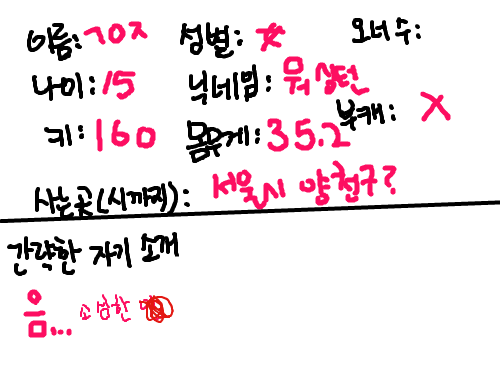 이름: ㄱㅇㅈ 성별: 오너 수:
나이: 15 닉네임: 뭐 상턴
부캐: X
키: 160 몸무게: 35.2
사는곳(시까지): 서울시 양천구?
간략한 자기 소개
음... 소심한